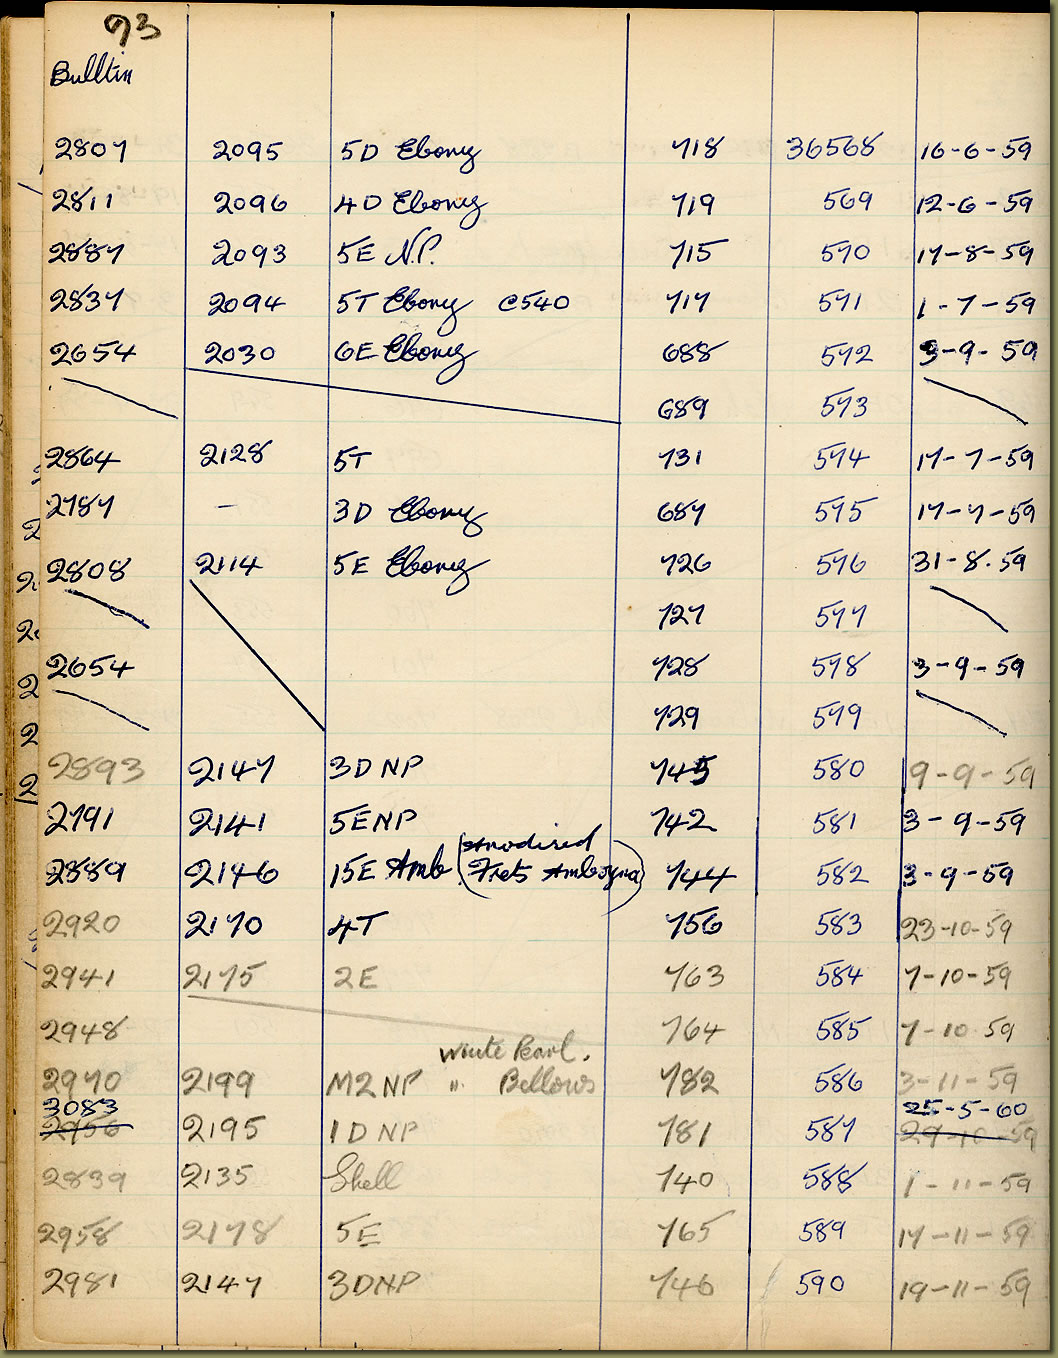 93
Bulltin
2807 2095 5D Ebony 718 36568 16-6-59
2811 2096 4D Ebony 719 569 12-6-59
2887 2093 5E N.P. 715 570 17-8-59
2837 2094 5T Ebony C540 717 571 1-7-59
2654 2030 6E Ebony 688 572 3-9-59
689 573
2864 2128 5T 731 574 17-7-59
2787 - 3D Ebony 687 575 17-7-59
2808 2114 5E Ebony 726 576 31-8.59
727 577
2654 728 578 3-9-59
729 579
2893 2147 3D NP 745 580 9-9-59
2791 2141 5ENP 742 581 3-9-59
Anodised
2889 2146 15E Amb (Frets Amboyna) 744 582 3-9-59
2920 2170 4T 756 583 23-10-59
2941 2175 2E 763 584 7-10-59
2948 764 585 7-10 59
White Pearl.
2970 2199 M2NP " Bellows 782 586 3-11-59
3083 25-5-60
2956 2195 1DNP 781 587 29-10-59
2839 2135 Shell 740 588 1-11-59
2958 2178 5E 765 589 17-11-59
2981 2147 3DNP 746 590 19-11-59